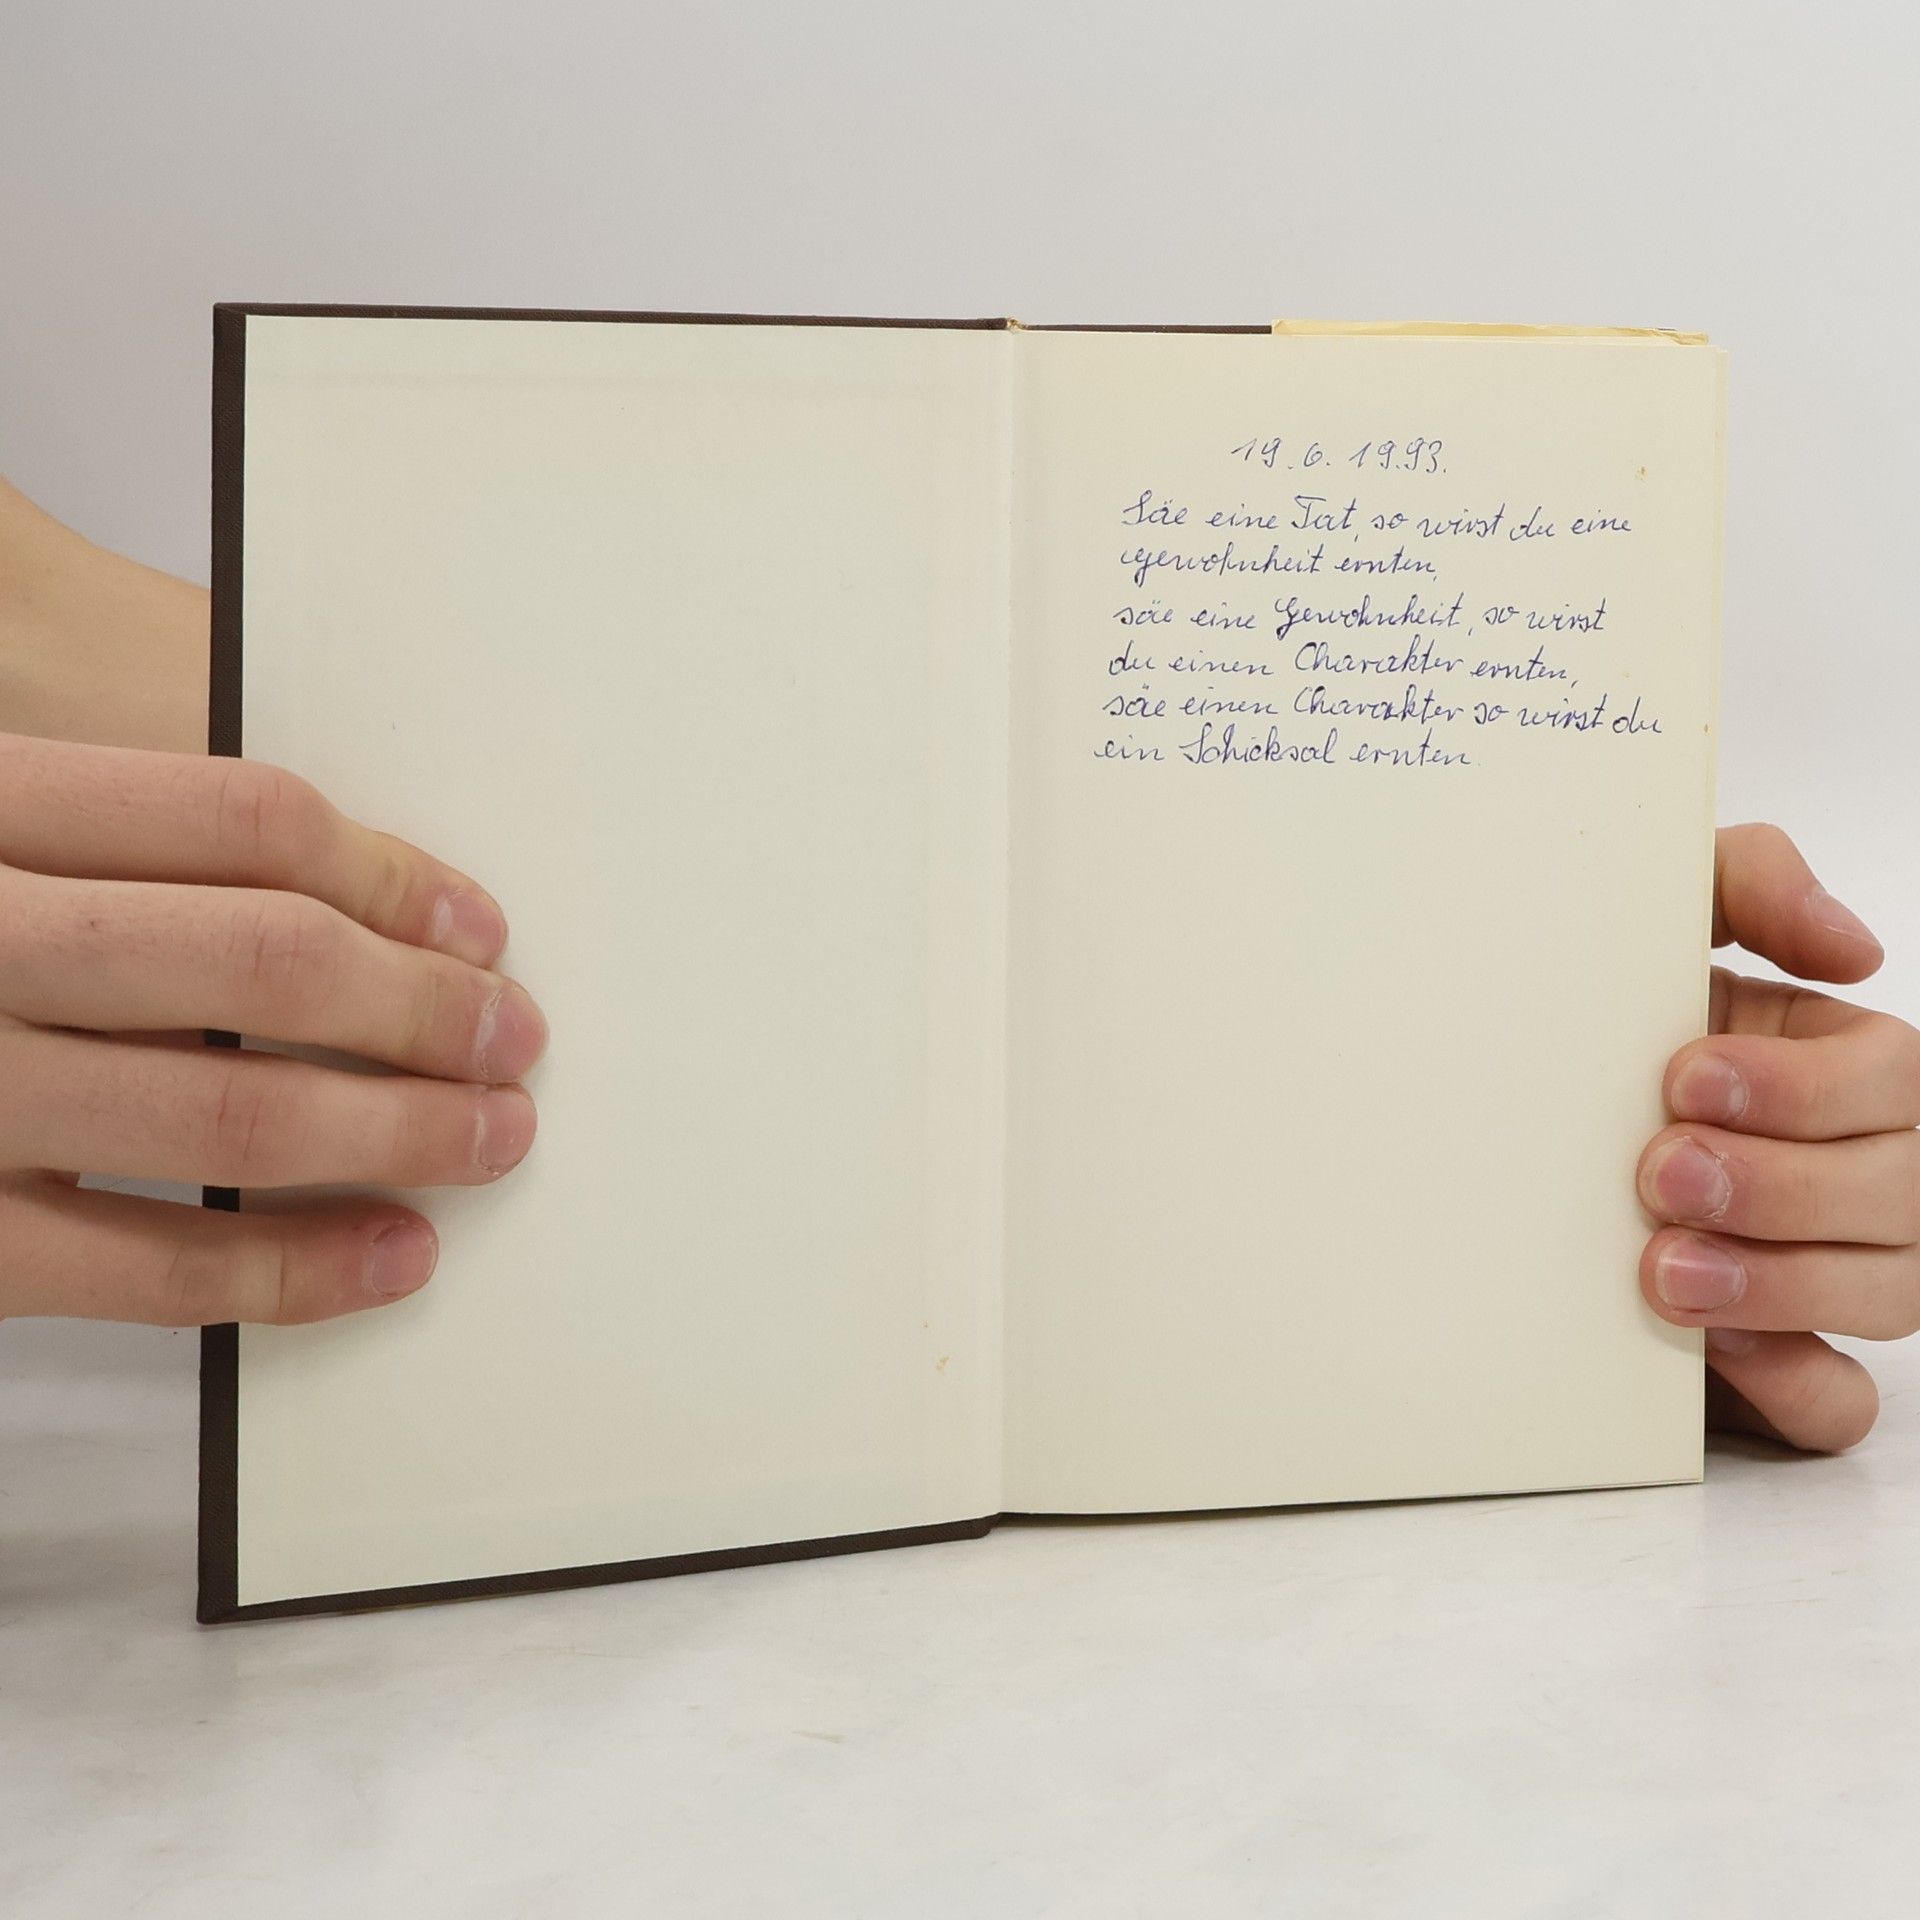 19.6.19.93.
Säe eine Tat, so wirst du eine
gewohnheit ernten,
säe eine Gewohnheit, so wirst
du einen Charakter ernten,
säe einen Charakter so wirst du
ein Schicksal ernten.